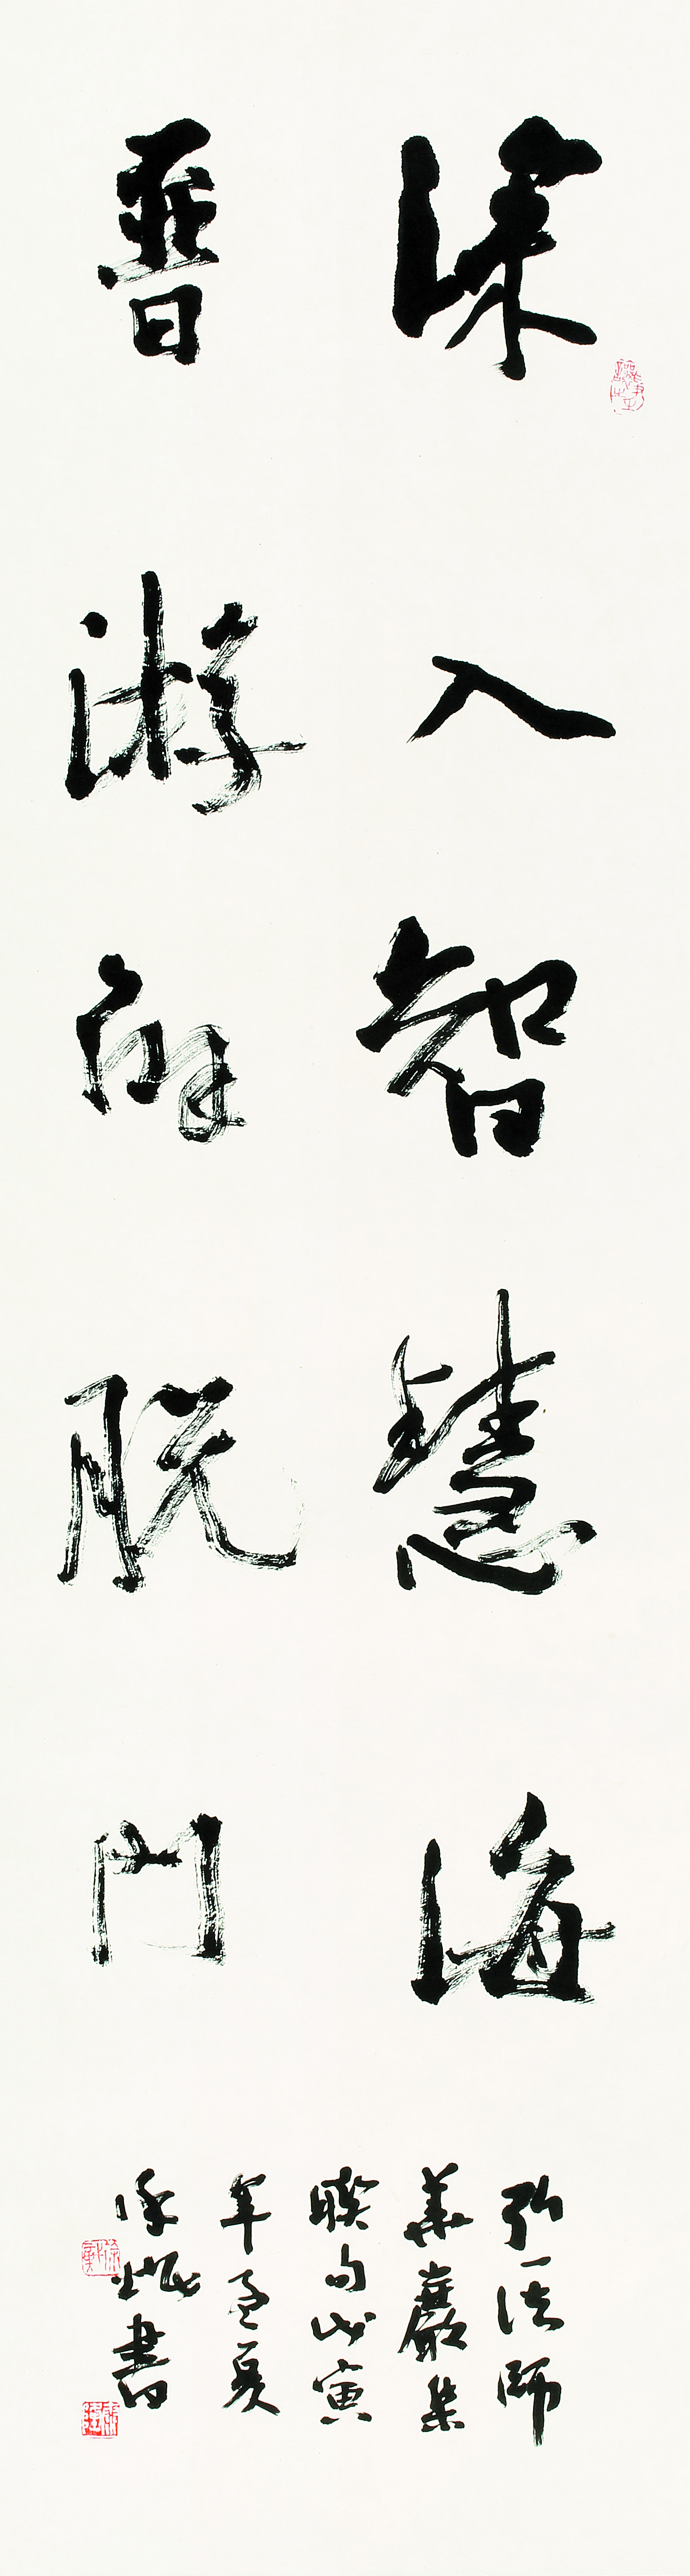 深入智慧海
普游解脱門
弘一法師
華嚴集
聯句戊寅
年孟夏
書